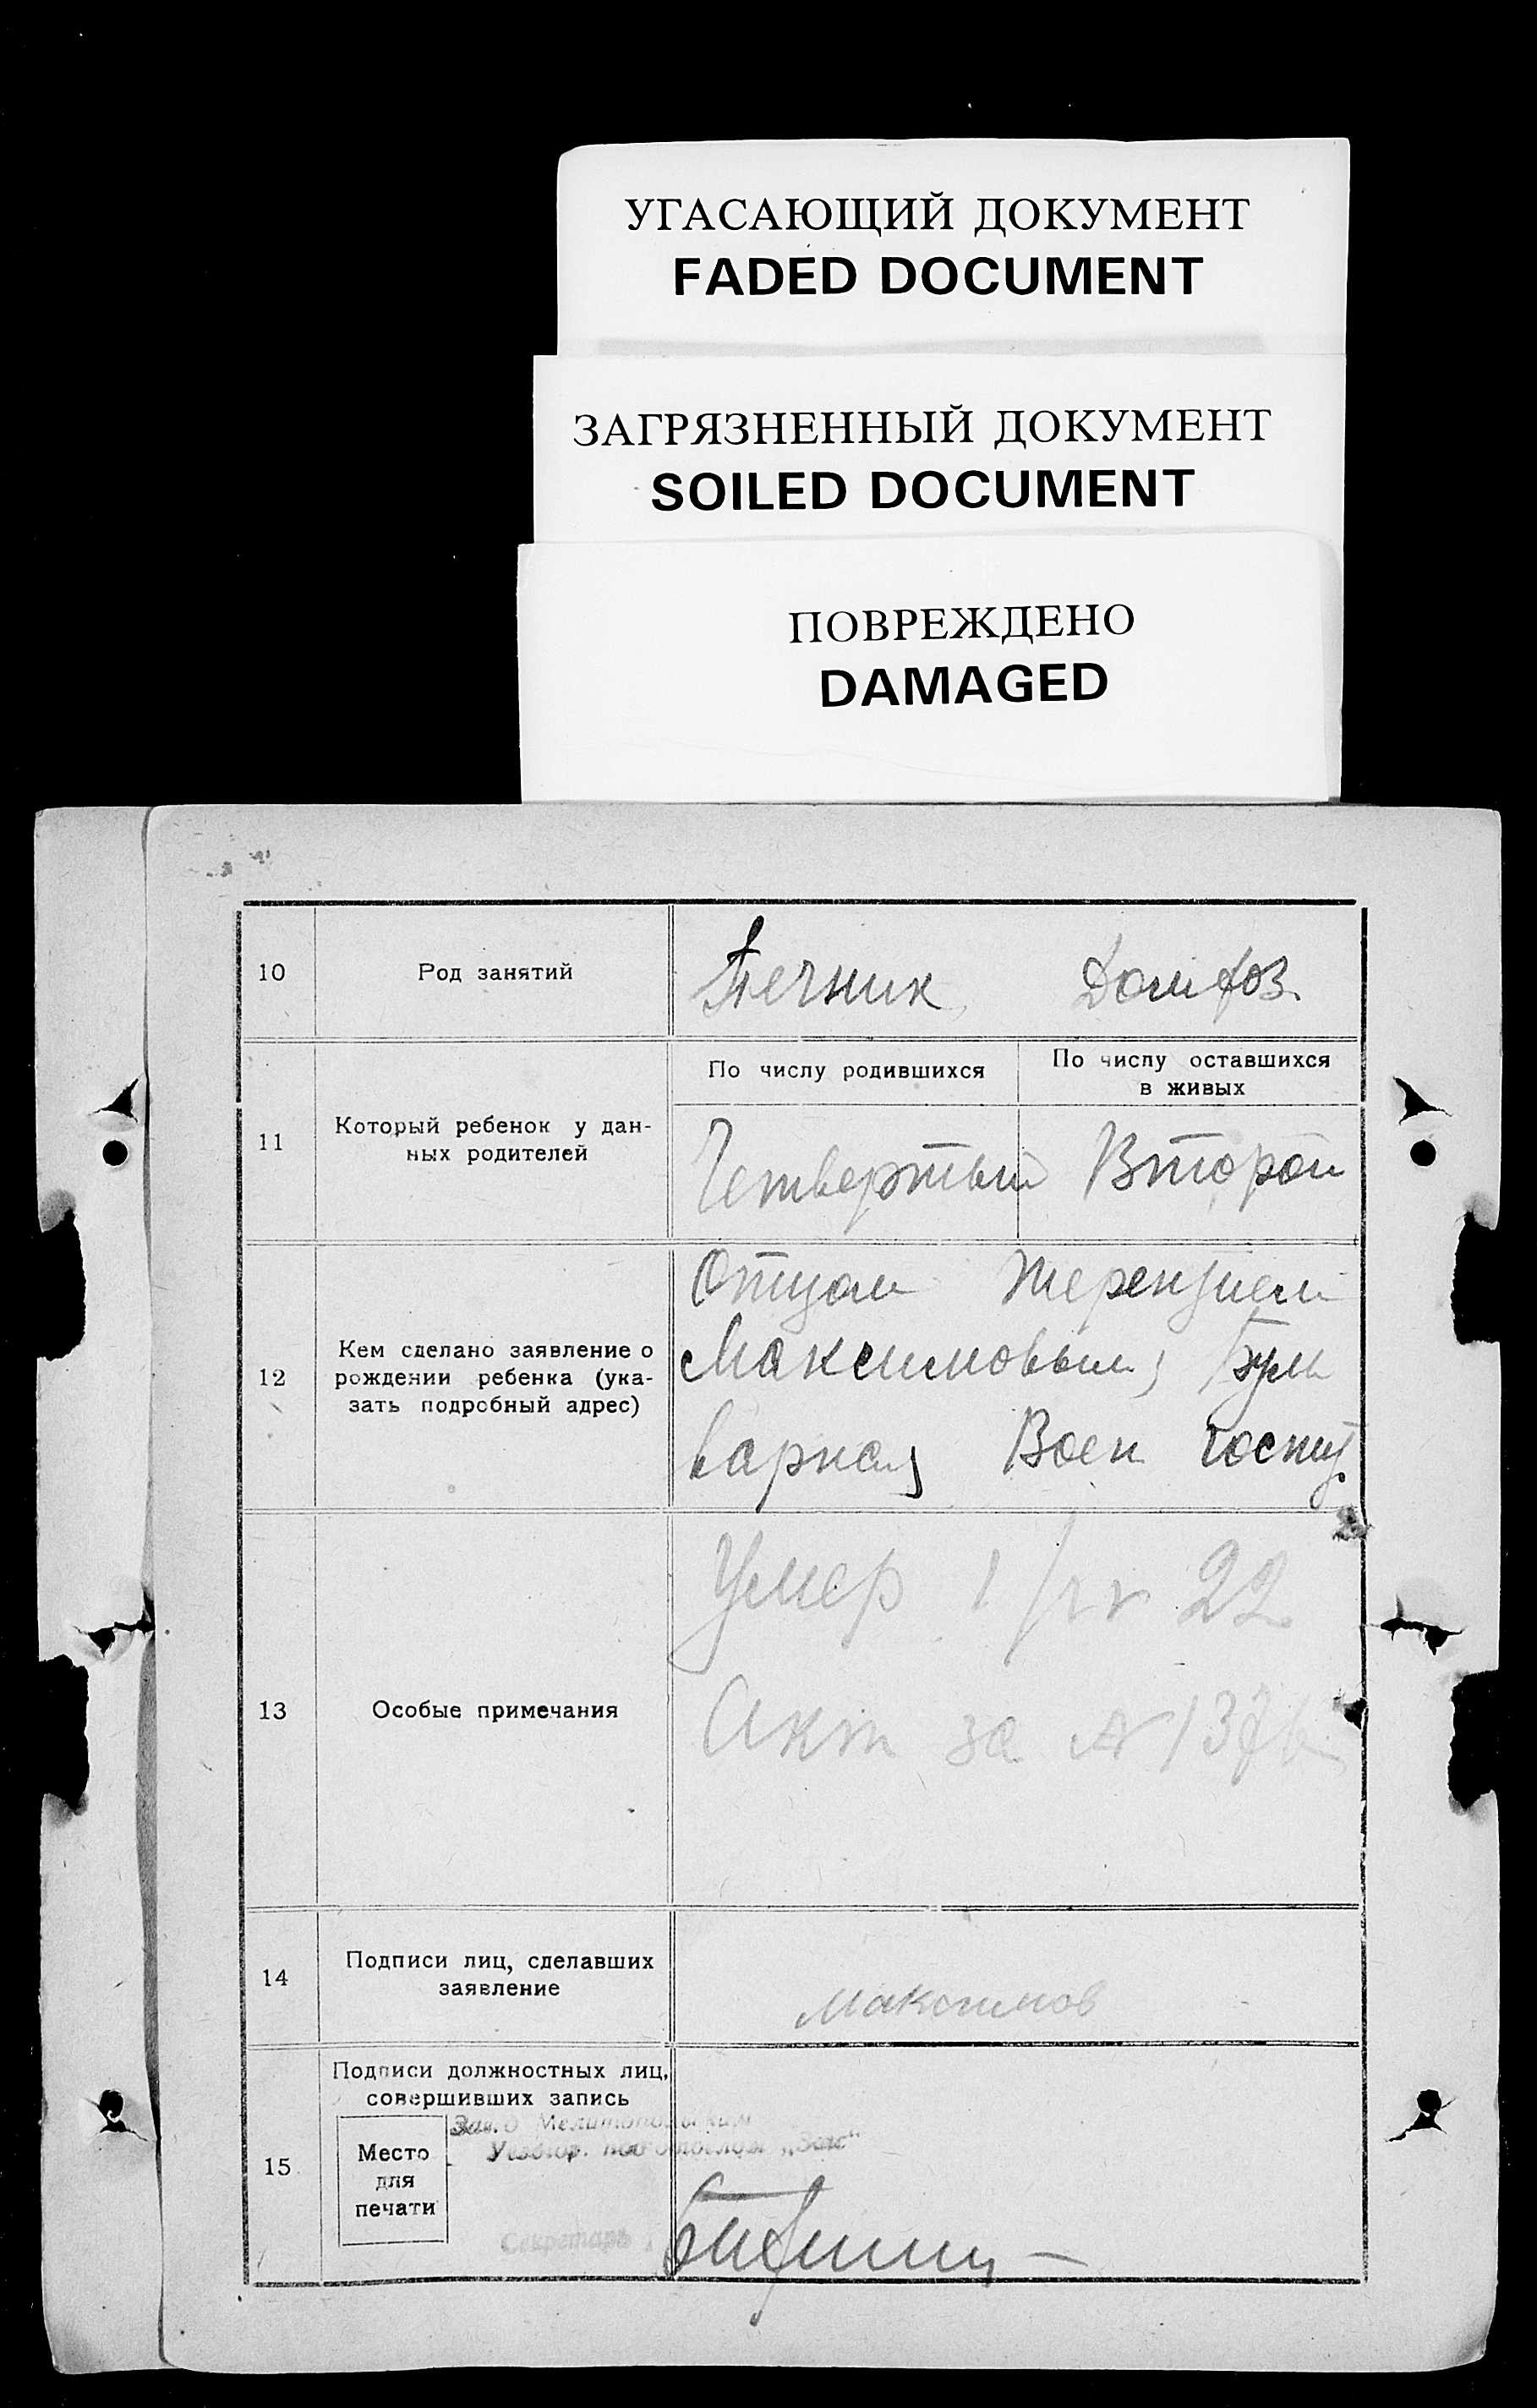 УГАСАЮЩИЙ ДОКУМЕНТ
FADED DOCUMENT
ЗАГРЯЗНЕННЫЙ ДОКУМЕНТ
SOILED DOCUMENT
ПОВРЕЖДЕНО
DAMAGED
10
Род занятий
Печник Домхоз.
11
Который ребенок у дан-
ных родителей
По числу родившихся
По числу оставшихся
в живых
Четвертый
Второй
12
Кем сделано заявление о
рождении ребенка (ука-
зать подробный адрес)
Отцом Терентием
Максимовым, Буль
варная Воен госпит.
13
Особые примечания
Умер 1 22
Акт за №
14
Подписи лиц, сделавших
заявление
Максимов
15
Подписи должностных лиц,
совершивших запись
Место
для
печати
Зав. Мелитопольским
„Загс“
Секретарь